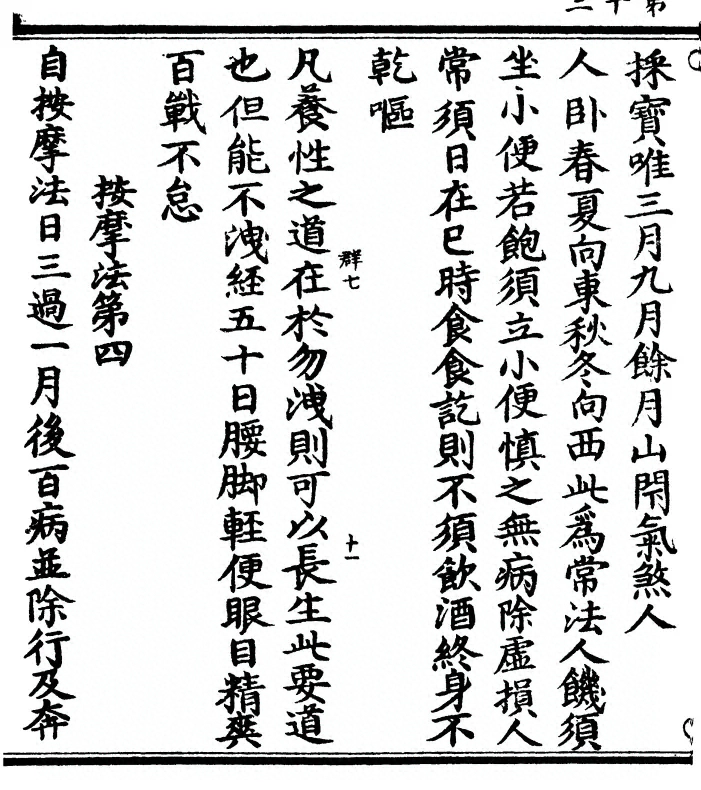 採寶唯三月九月餘月山閇氣煞人
人卧春夏向東秋冬向西此為常法人饑須
坐小便若飽須立小便慎之無病除虛損人
常須日在巳時食食訖則不須飲酒終身不
乾嘔
群七
十一
凡養性之道在於勿洩則可以長生此要道
也但能不洩経五十日腰脚輕便眼目精爽
百戰不怠
按摩法第四
自按摩法日三過一月後百病並除行及奔